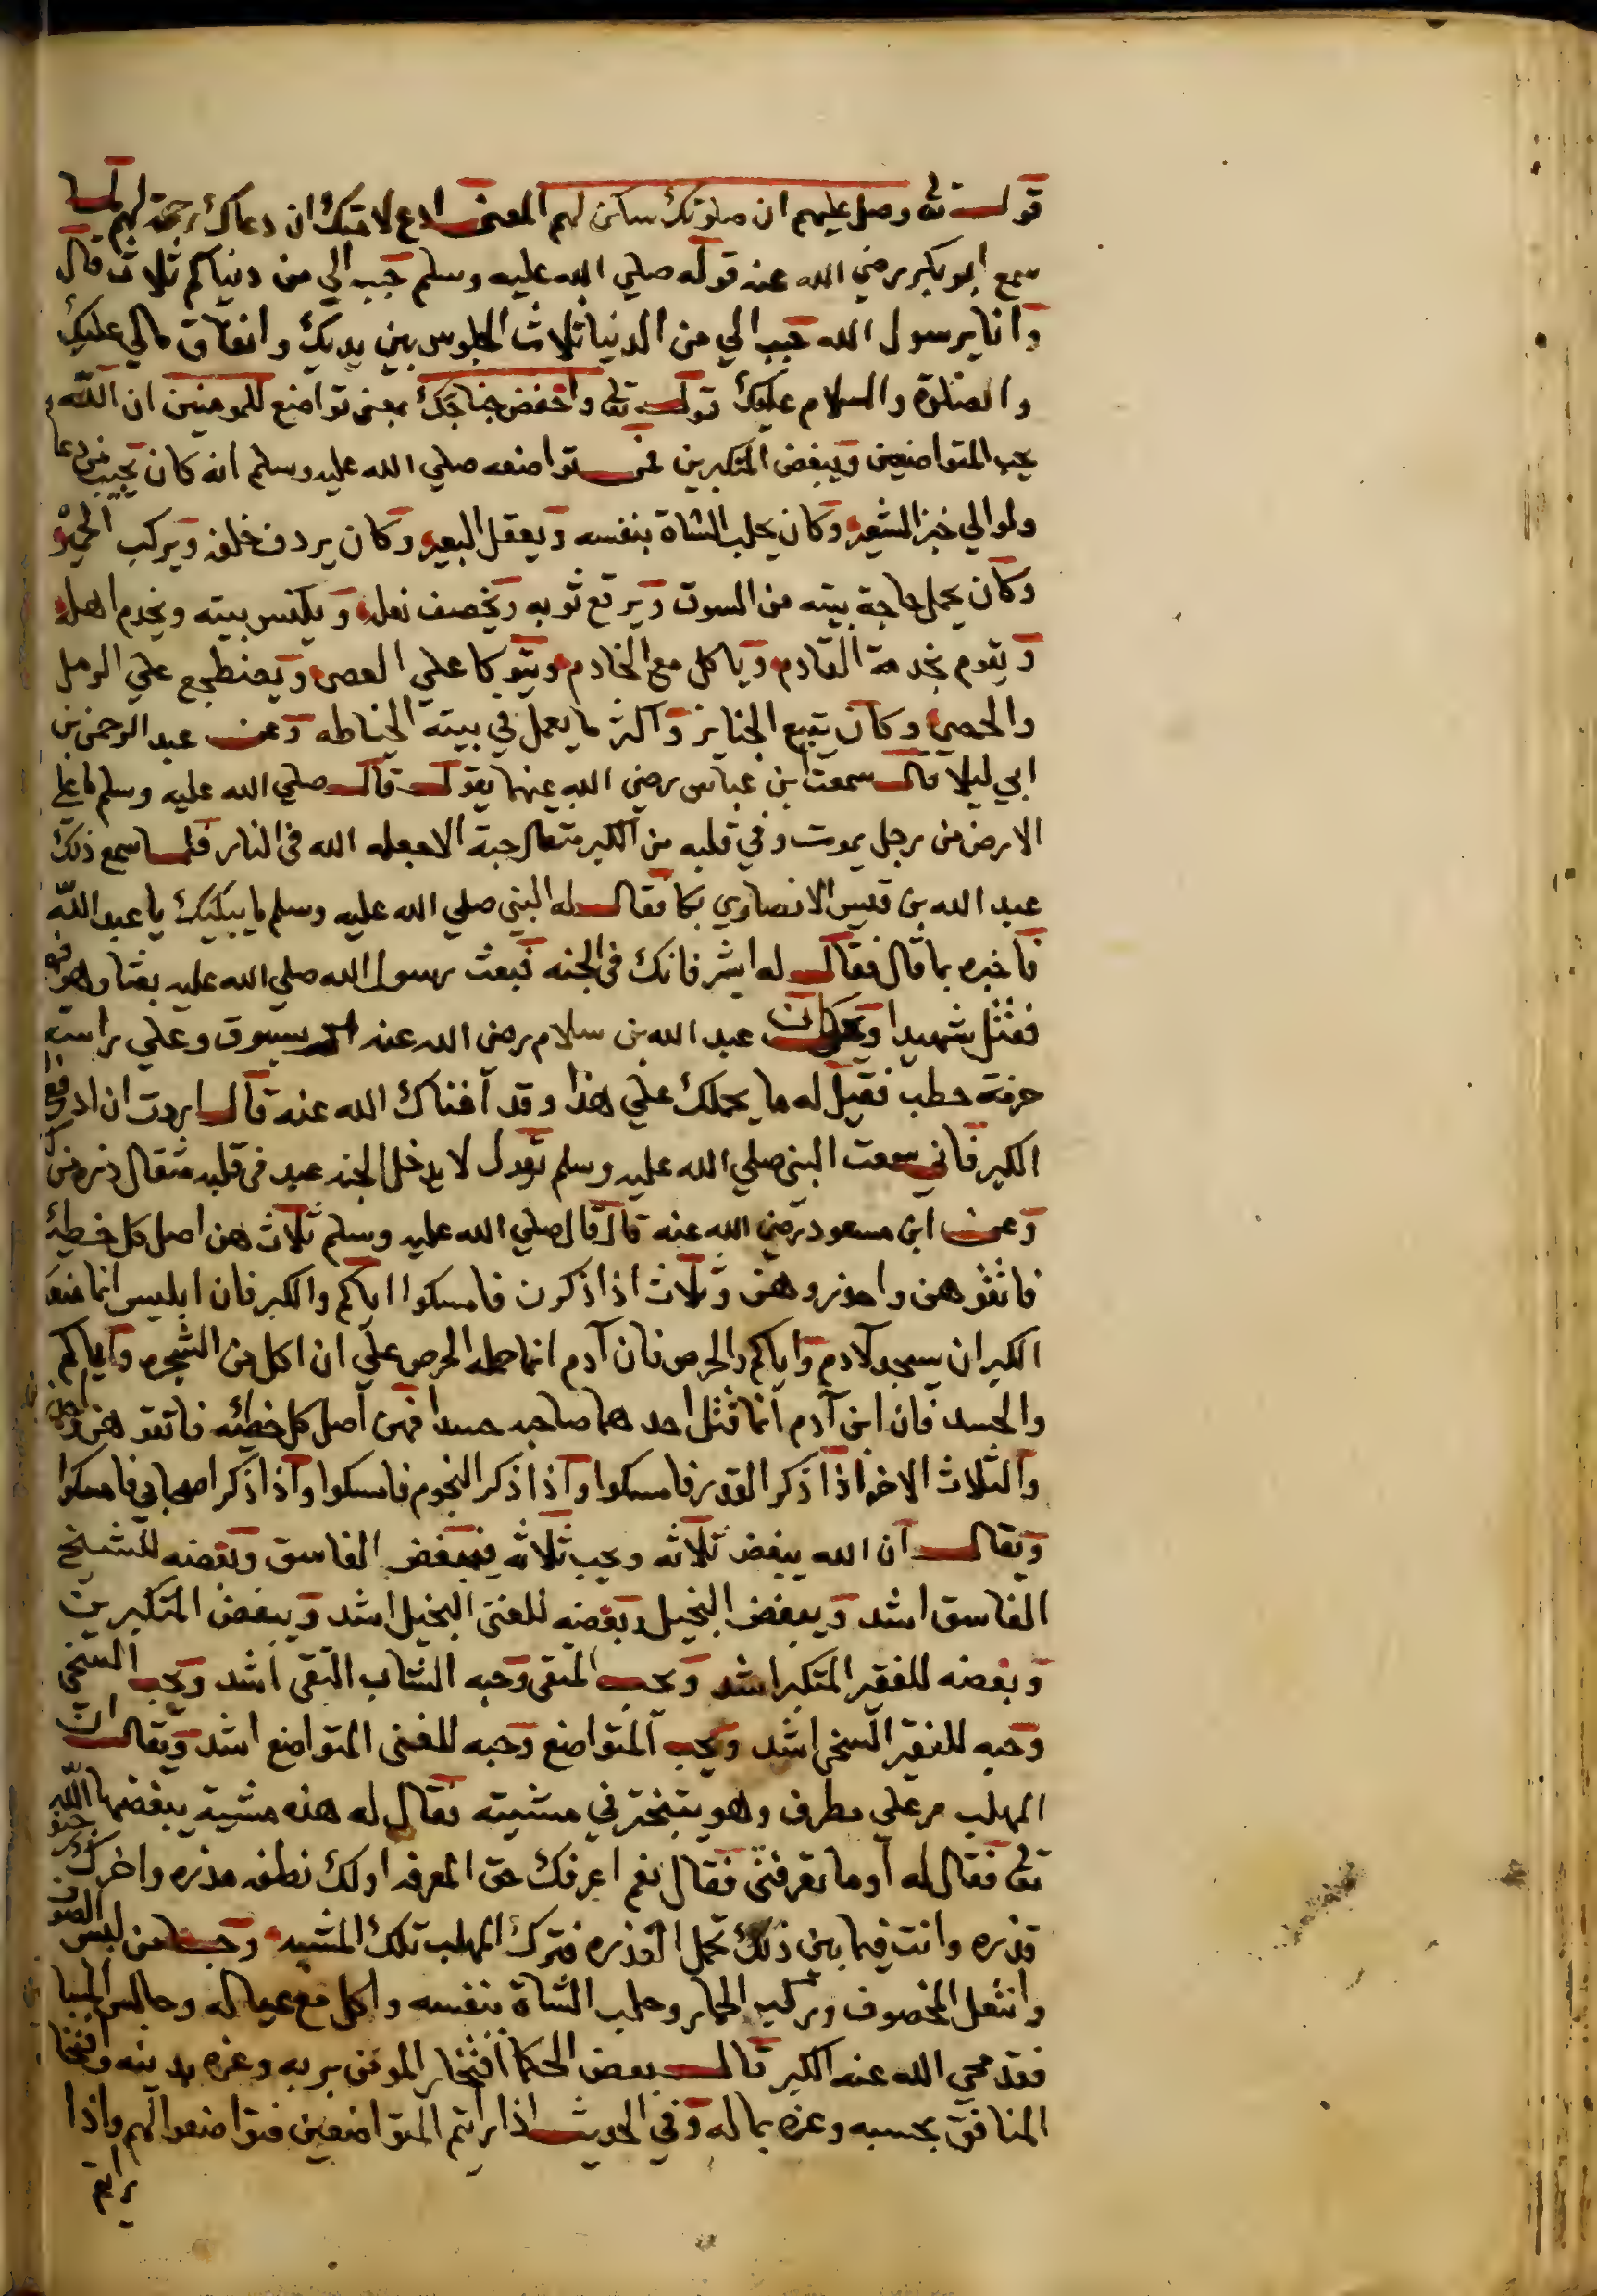 قوله تعالى وصل عليهم ان صلوتك سكن لهم المعنى ادع لامتك ان دعاك رحمة لهم لما
سمع ابو بكر رضي الله عنه قوله صلي الله عليه وسلم حبب الي من دنياكم ثلاث قال
وانا يرسول الله حبب الي من الدنيا ثلاث الجلوس بين يديك وانفاق مالي عليك
والصلوة والسلام عليك قوله تعالى واخفض جناحك بمعنى تواضع للمومنين ان الله
يحب المتواضعين ويبغض المتكبرين فمن تواضعه صلي الله عليه وسلم انه كان يجيب من دعا
ولو الي خبز الشعير وكان يحلب الشاة بنفسه ويعقل البعير وكان يردف خلفه ويركب الحمير
وكان يحمل حاجة بيته من السوق ويرقع ثوبه ويخصف نعله ويكنس بيته ويخدم اهله
ويقوم بخدمة القادم وياكل مع الخادم ويتوكا علي العصي ويضطجع علي الرمل
والحصي وكان يتبع الجنايز واكثر ما يعمل في بيته الخياطه وعن عبد الرحمن بن
ابي ليلا قال سمعت بن عباس رضي الله عنهما يقول قال صلي الله عليه وسلم ما علي
الارض من رجل يموت وفي قلبه من الكبر مثقال حبة الا جعله الله في النار فلما سمع ذلك
عبد الله بن قيس الانصاوي بكا فقال له النبي صلي الله عليه وسلم ما يبكيك يا عبد الله
فاخبره بما قال فقال له ابشر فانك في الجنه فبعث رسول الله صلي الله عليه بعثا وهو فيه
فقتل شهيدا وكان عبد الله بن سلام رضي الله عنه يسوق وعلي راسه
حزمة حطب فقيل له ما يحملك علي هذا وقد اغناك الله عنه قال اردت ان ادفع
الكبر فاني سمعت النبي صلي الله عليه وسلم يقول لا يدخل الجنه عبد في قلبه مثقال ذره من كبر
وعن ابن مسعود رضي الله عنه قال قال صلي الله عليه وسلم ثلاث هن اصل كل خطية
فاتقوهن واحذروهن وثلاث اذا ذكرن فامسكوا اياكم والكبر فان ابليس انما منعه
الكبر ان يسجد لآدم واياكم والحرص فان آدم انما حمله الحرص علي ان اكل من الشجره واياكم
والحسد فان ابن آدم انما قتل احدهما صاحبه حسدا فهن اصل كل خطيئه فاتقوهن واحذروهن
والثلاث الاخر اذا ذكر القدر فامسكوا واذا ذكر النجوم فامسكوا واذا ذكر اصحابي فامسكوا
ويقال ان الله يبغض ثلاثه ويحب ثلاثه فيبغض الفاسق وبغضه للشيخ
الفاسق اشد ويبغض البخيل وبغضه للغني البخيل اشد ويبغض المتكبرين
وبغضه للفقير المتكبر اشد ويحب المتقي وحبه الشاب التقي اشد ويحب السخي
وحبه للفقير السخي اشد ويحب المتواضع وحبه للغني المتواضع اشد ويقال ان
المهلب مر علي مطرف وهو يتبختر في مشيته فقال له هذه مشية يبغضها الله
تعالى فقال له أوما تعرفني فقال نعم اعرفك حق المعرفه اولك نطفه مذره واخرك جيفة
قذره وانت فيما بين ذلك تحمل القذره فترك المهلب تلك المشيه وجا من لبس الصوف
وانتعل المخصوف وركب الحمار وحلب الشاة بنفسه واكل مع عياله وجالس المسا
فقد محي الله عنه الكبر قال بعض الحكما افتخار المومن بربه وعزه بدينه وافتخا
المنافق بحسبه وعزه بماله وفي الحديث اذا رايتم المتواضعين فتواضعوا لهم واذا
رايتم